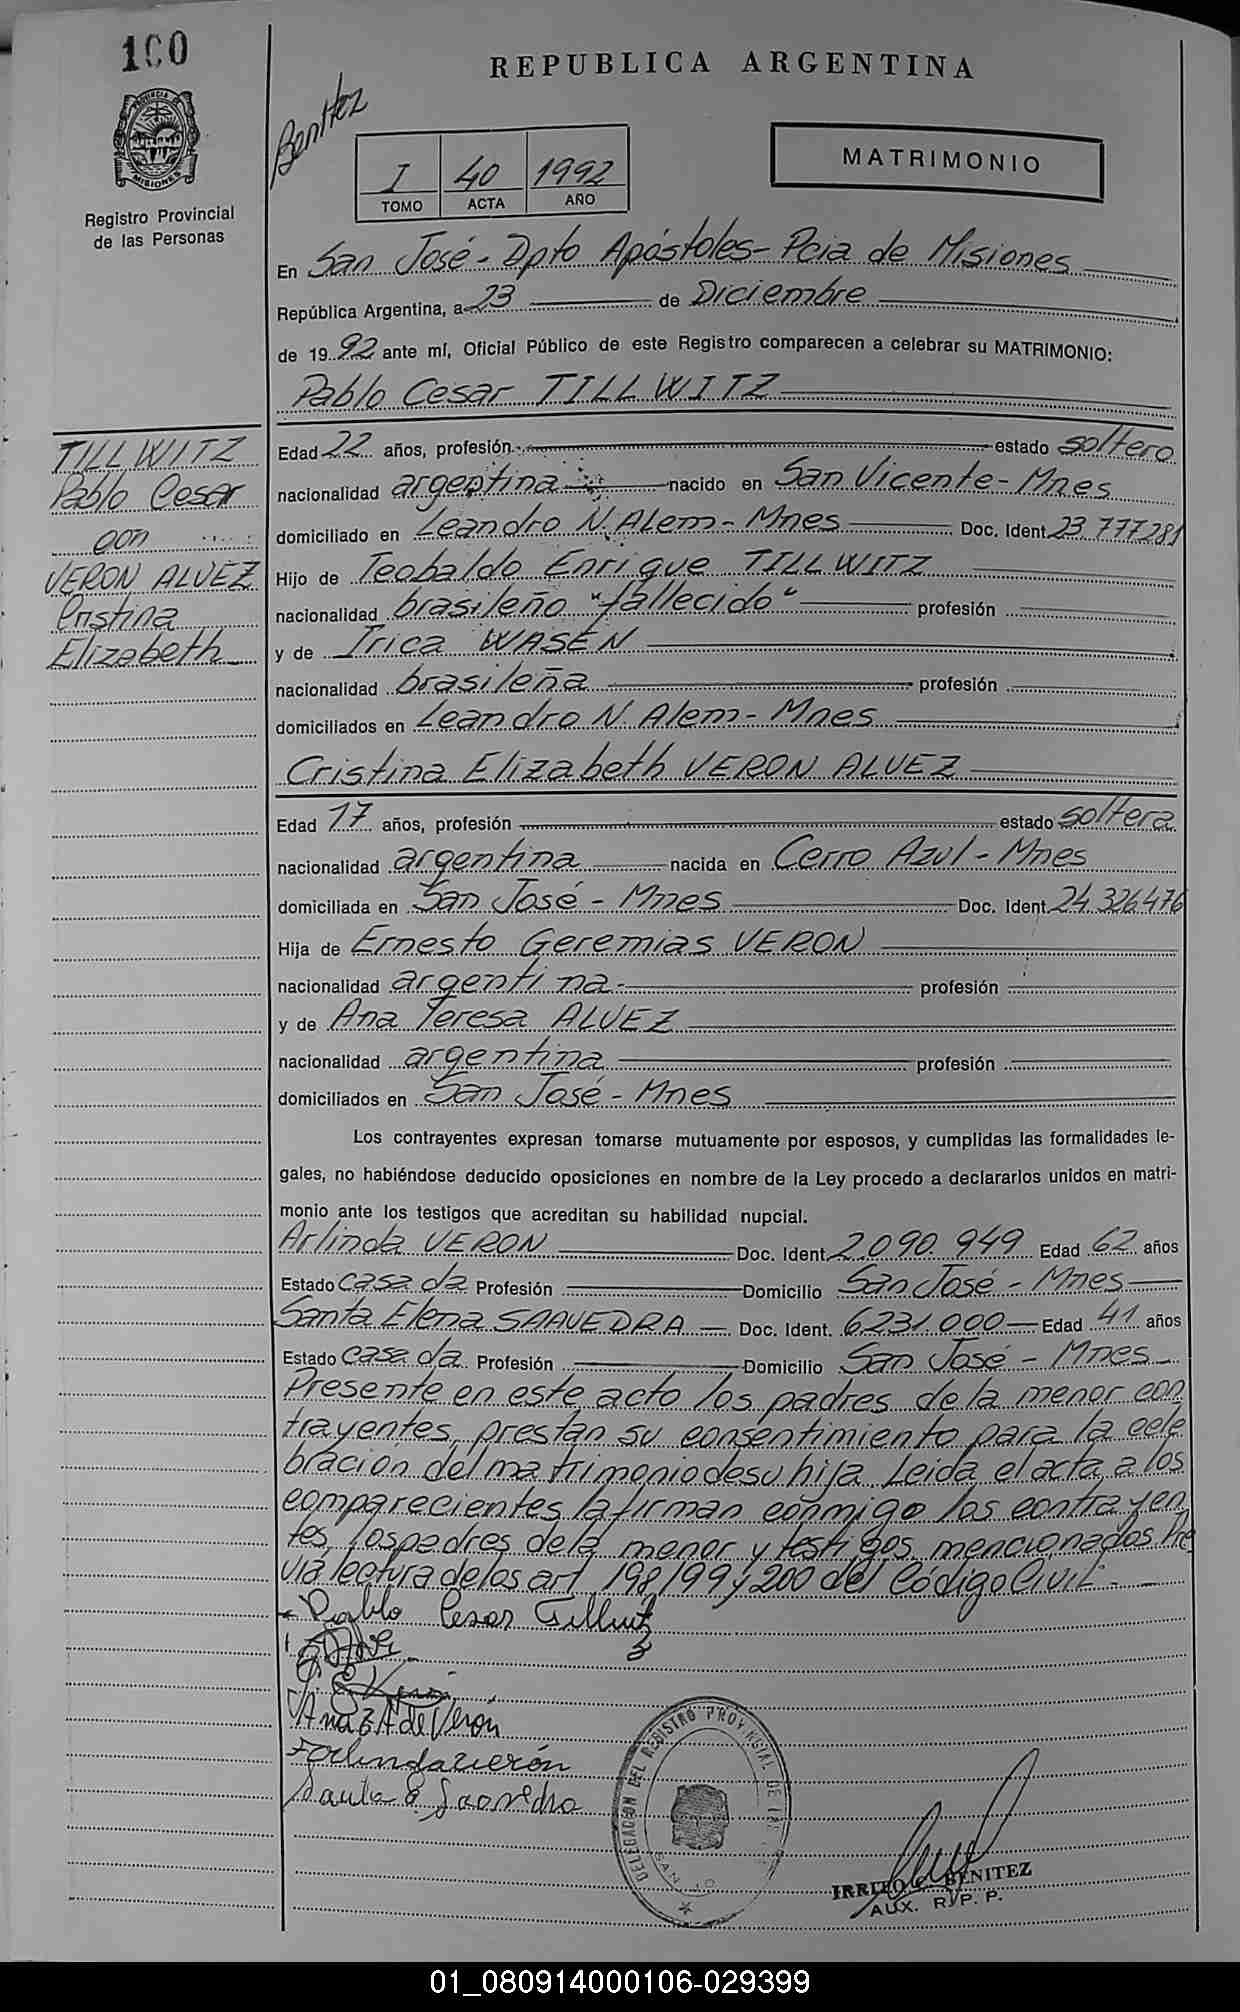 100
PROVINCIA DE
MISIONES
Registro Provincial
de las Personas
Benitez
REPUBLICA ARGENTINA
I 40 1992
TOMO ACTA AÑO
MATRIMONIO
En San José - Dpto Apóstoles - Pcia de Misiones
República Argentina, a 23 de Diciembre
de 19 92 ante mí, Oficial Público de este Registro comparecen a celebrar su MATRIMONIO:
Pablo Cesar TILLWITZ
TILLWITZ
Pablo Cesar
con
VERON ALVEZ
Cristina
Elizabeth
Edad 22 años, profesión estado soltero
nacionalidad argentina nacido en San Vicente - Mnes
domiciliado en Leandro N. Alem - Mnes Doc. Ident. 23.777.281
Hijo de Teobaldo Enrique TILLWITZ
nacionalidad brasileño "fallecido" profesión
y de Irica WASEN
nacionalidad brasileña profesión
domiciliados en Leandro N. Alem - Mnes
Cristina Elizabeth VERON ALVEZ
Edad 17 años, profesión estado soltera
nacionalidad argentina nacida en Cerro Azul - Mnes
domiciliada en San José - Mnes Doc. Ident. 24.326.476
Hija de Ernesto Geremias VERON
nacionalidad argentina.- profesión
y de Ana Teresa ALVEZ
nacionalidad argentina profesión
domiciliados en San José - Mnes
Los contrayentes expresan tomarse mutuamente por esposos, y cumplidas las formalidades le-
gales, no habiéndose deducido oposiciones en nombre de la Ley procedo a declararlos unidos en matri-
monio ante los testigos que acreditan su habilidad nupcial.
Arlinda VERON Doc. Ident. 2.090.949 Edad 62 años
Estado casada Profesión Domicilio San José - Mnes
Santa Elena SAAVEDRA Doc. Ident. 6.231.000 Edad 41 años
Estado casada Profesión Domicilio San José - Mnes
Presente en este acto los padres de la menor con
trayentes, prestan su consentimiento para la cele
bración del matrimonio de su hija. Leida el acta, a los
comparecientes la firman conmigo los contrayen
tes, los padres de la menor y testigos mencionados. Pre
via lectura de los art. 198, 199 y 200 del Código Civil.-
Pablo Cesar Tillwitz
Ana T A de Verón
Arlinda Verón
Santa E. Saavedra
DELEGACION DEL REGISTRO PROVINCIAL DE LAS
SAN JO
BENITEZ
AUX. R. P. P.
01_080914000106-029399